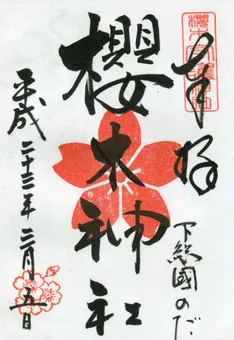 奉拝
下総國のだ
櫻木神社
平成二十三年二月五日